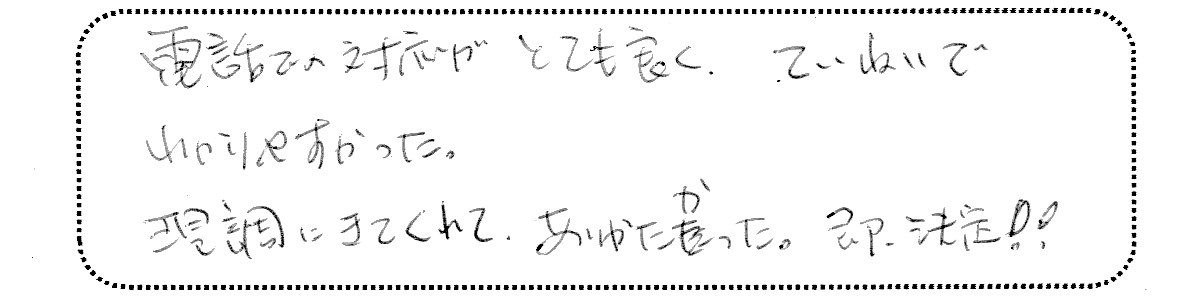 電話での対応が とても良く、ていねいで
わかりやすかった。
現調にきてくれて、ありがたかった。即、決定!!